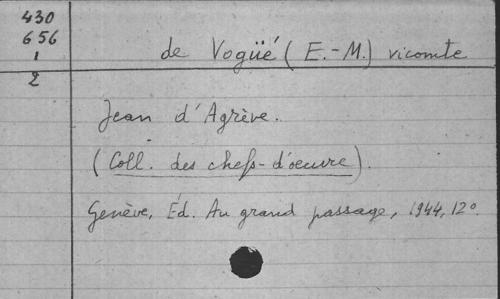 430
656
1
2
de Vogüé (E.-M.) vicomte
Jean d'Agrève.
(Coll. des chefs-d'oeuvre).
Genève, Éd. Au grand passage, 1944, 12°.